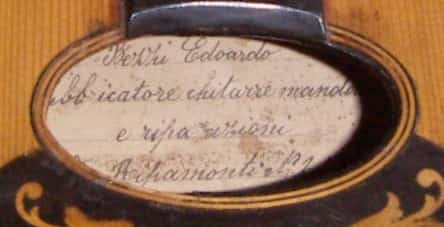 Bezzi Edoardo
abbricatore chitarre mando
e riparazioni
Ripamonti N.